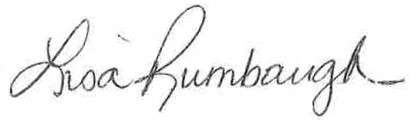 Lisa Rumbaugh